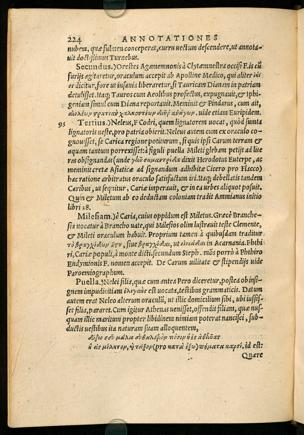 224 ANNOTATIONES
nubem, quæ fulmen conceperat, currus vectum descendere, ut annota-
uit doctissimus Turnebus.
Secundus.) Orestes Agamemnonis à Clytæmnestra occisi F. is cũ
furijs agitaretur, oraculum accepit ab Apolline Medico, qui aliter
dicitur, fore ut insania liberaretur, si Tauricam Dianam in patriam
detulisset. Itaq; Tauros cum Aeolibus profectus, expugnauit, & Iphi-
geniam simul cum Diana reportauit. Meminit & Pindarus, cum ait,
uide etiam Euripidem.
95 Tertius.) Neleus, F. Codri, quem lignatorem uocat, quòd iuncta
lignatoris ueste, pro patria obierit. Neleus autem cum ex oraculo co-
gnouisset, se Caria regione potiturum, si quis ipsi Carum terram &
aquam tantum porrexisset: à figuli puella Mileti glebam petijt ad lite
ras obsignandas (unde dixit Herodotus Euterpe, ac
meminit cretæ Asiaticæ ad signandum adhibitæ Cicero pro Flacco)
hac ratione arbitratus oraculo satisfactum iri. Itaq; debellatis tandem
Caribus, ut sequitur, Cariæ imperauit, & in ea urbes aliquot posuit.
Quin & Miletum ab eo deductam coloniam tradit Ammianus initio
libri 28.
Milesiam.) à Caria, cuius oppidum est Miletus. Græcè Branche-
sis uocatur à Brancho uate, qui Milesios olim lustrauit teste Clemente,
& Mileti oraculum habuit. Proprium tamen à quibusdam traditur
siue ut in Acarnania. Phthi
ri, Cariæ populi, à monte dicti, secundum Steph. mõs porrò à Phthiro
Endymionis F. nomen accepit. De Carum uilitate & stipendijs uide
Parœmiographum.
Puella.) Nelei filia, quæ cum antea Pero diceretur, postea ob insi-
gnem impudicitiam est uocata, testibus grammaticis. Datum
autem erat Neleo alterum oraculũ, ut illic domicilium sibi, ubi iussis-
set filia, pararet. Cum igitur Athenas uenisset, offendit filiam, quæ nus-
quam illic maritum propter libidinem nimiam poterat nancisci, sub-
ductis uestibus ita naturam suam alloquentem,
id est:
Quære